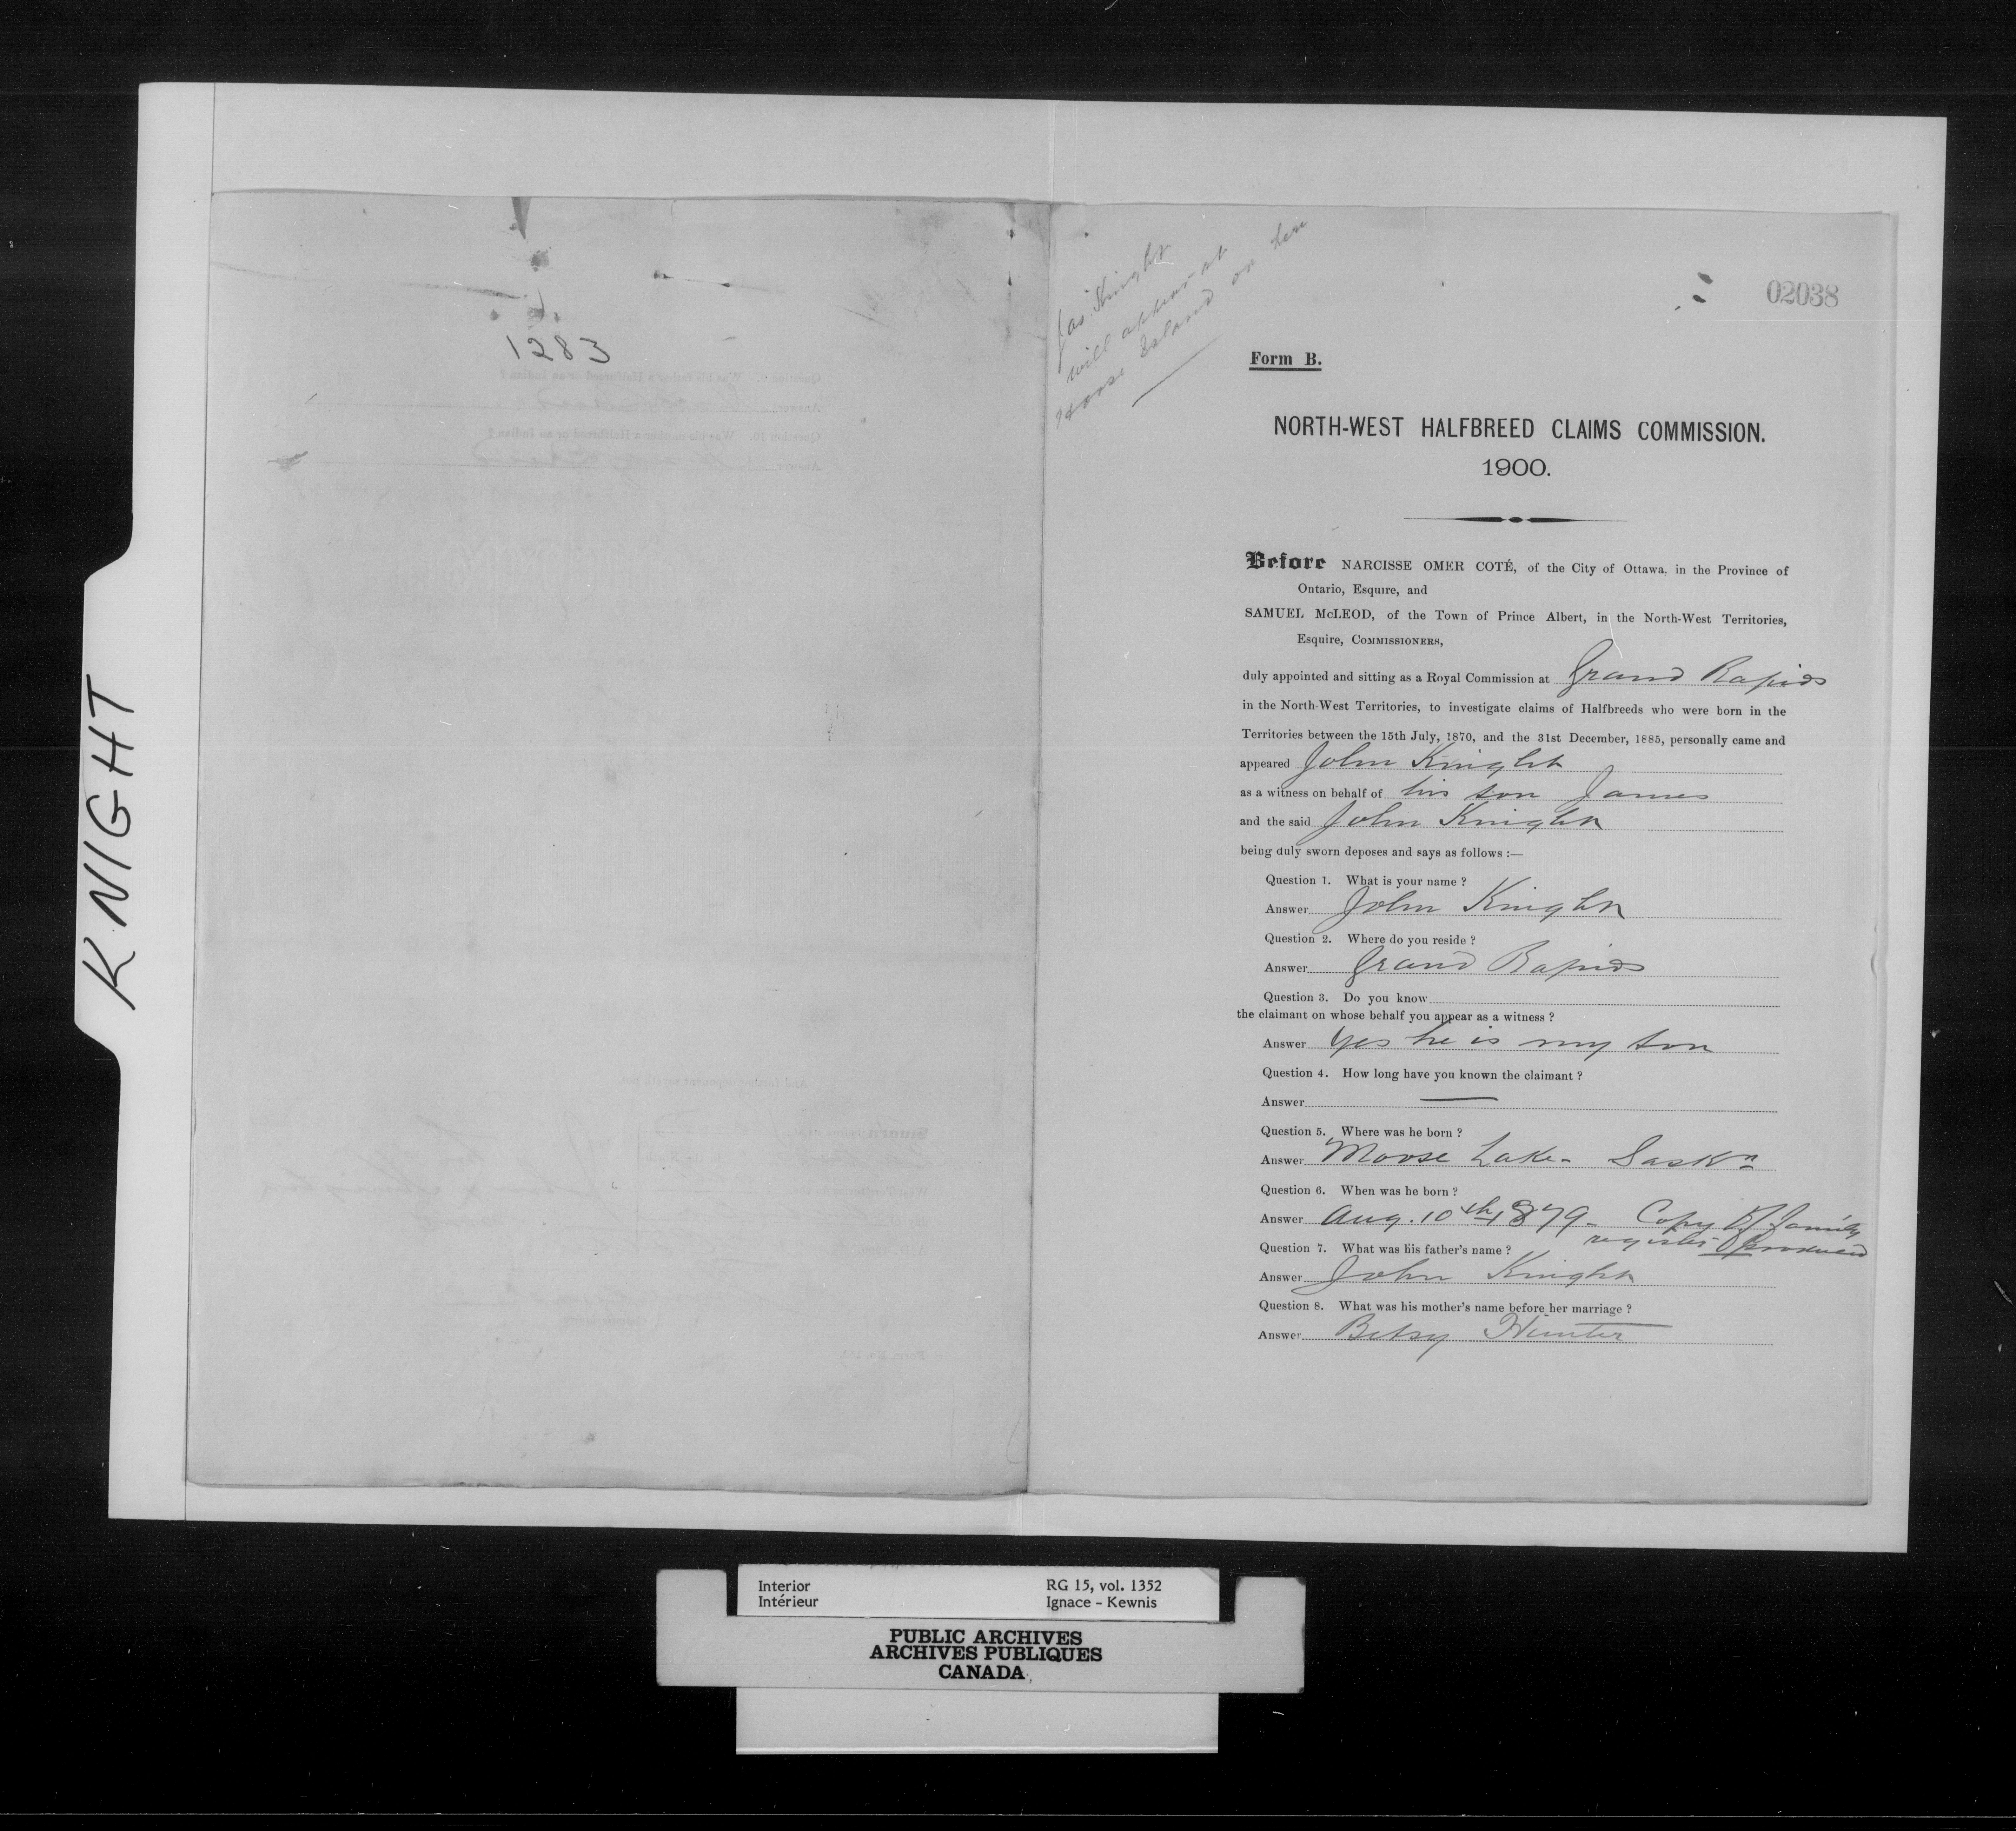 KNIGHT
1283
Jas Knight
will appear at
Horse Island or here
02038
Form B.
NORTH-WEST HALFBREED CLAIMS COMMISSION.
1900.
Before NARCISSE OMER COTÉ, of the City of Ottawa, in the Province of
Ontario, Esquire, and
SAMUEL McLEOD, of the Town of Prince Albert, in the North-West Territories,
Esquire, COMMISSIONERS,
duly appointed and sitting as a Royal Commission at Grand Rapids
in the North-West Territories, to investigate claims of Halfbreeds who were born in the
Territories between the 15th July, 1870, and the 31st December, 1885, personally came and
appeared John Knight
as a witness on behalf of his son James
and the said John Knight
being duly sworn deposes and says as follows :—
Question 1. What is your name ?
Answer John Knight
Question 2. Where do you reside ?
Answer Grand Rapids
Question 3. Do you know
the claimant on whose behalf you appear as a witness ?
Answer Yes he is my son
Question 4. How long have you known the claimant ?
Answer —
Question 5. Where was he born ?
Answer Moose Lake - Saskn
Question 6. When was he born ?
Answer Aug. 10th 1879 - Copy of family
register produced
Question 7. What was his father's name ?
Answer John Knight
Question 8. What was his mother's name before her marriage ?
Answer Betsy Hunter
Interior RG 15, vol. 1352
Intérieur Ignace - Kewnis
PUBLIC ARCHIVES
ARCHIVES PUBLIQUES
CANADA